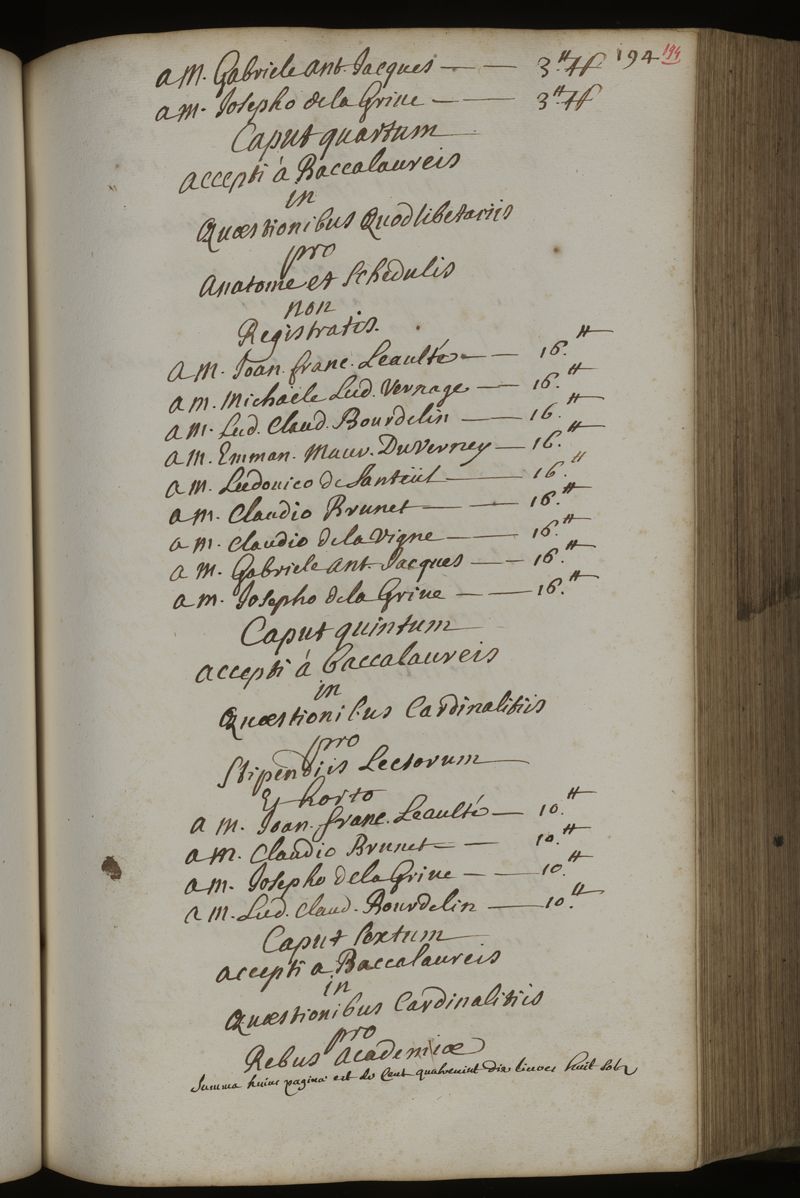 a M. Gabriele Ant. Jacques — — 3.ᵗᵗ 4ſ 194 194
a M. Josepho de la Grive — — 3ᵗᵗ 4ſ
Caput quartum
accepti à Baccalaureis
in
Quæstionibus Quodlibetariis
pro
Anatome et Schedulis
non
Registratis.
a M. Joan. franc. Leaulté — — 16.ᵗᵗ
a M. Michaële Lud. Vernage — — 16.ᵗᵗ
a M. Lud. Claud. Bourdelin — — 16.ᵗᵗ
a M. Emman. Maur. DuVerney — 16.ᵗᵗ
a M. Ludovico de Santeül — — 16.ᵗᵗ
a M. Claudio Brunet — — 16.ᵗᵗ
a M. Claudio de la Vigne — — 16.ᵗᵗ
a M. Gabriele Ant. Jacques — — 16.ᵗᵗ
a M. Josepho de la Grive — — 16.ᵗᵗ
Caput quintum
accepti à baccalaureis
in
Quæstionibus Cardinalitiis
pro
Stipendiis Lectorum
Et horto
a M. Joan. franc. Leaulté — 10.ᵗᵗ
a M. Claudio Brunet — — 10.ᵗᵗ
a M. Josepho de la Grive — — 10.ᵗᵗ
a M. Lud. Claud. Bourdelin — 10.ᵗᵗ
Caput Sextum
accepti a Baccalaureis
in
Quæstionibus Cardinalitiis
pro
Rebus Academicæ
Summa huius pagina est de Cent quatrevint dix livres huit sols